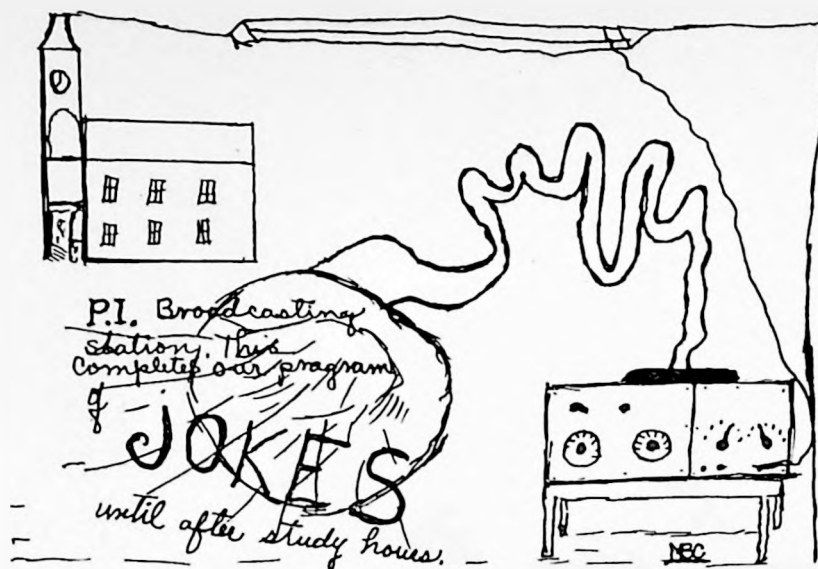 P.I. Broadcasting
station. This
Completes our program
of
JOKES
until after study hours.
NBC